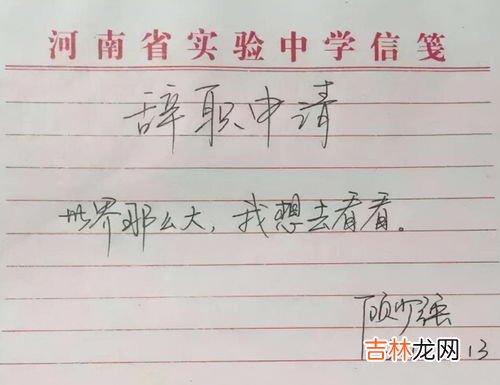 河南省实验中学信笺
辞职申请
世界那么大,我想去看看。
顾少强
13
吉林龙网